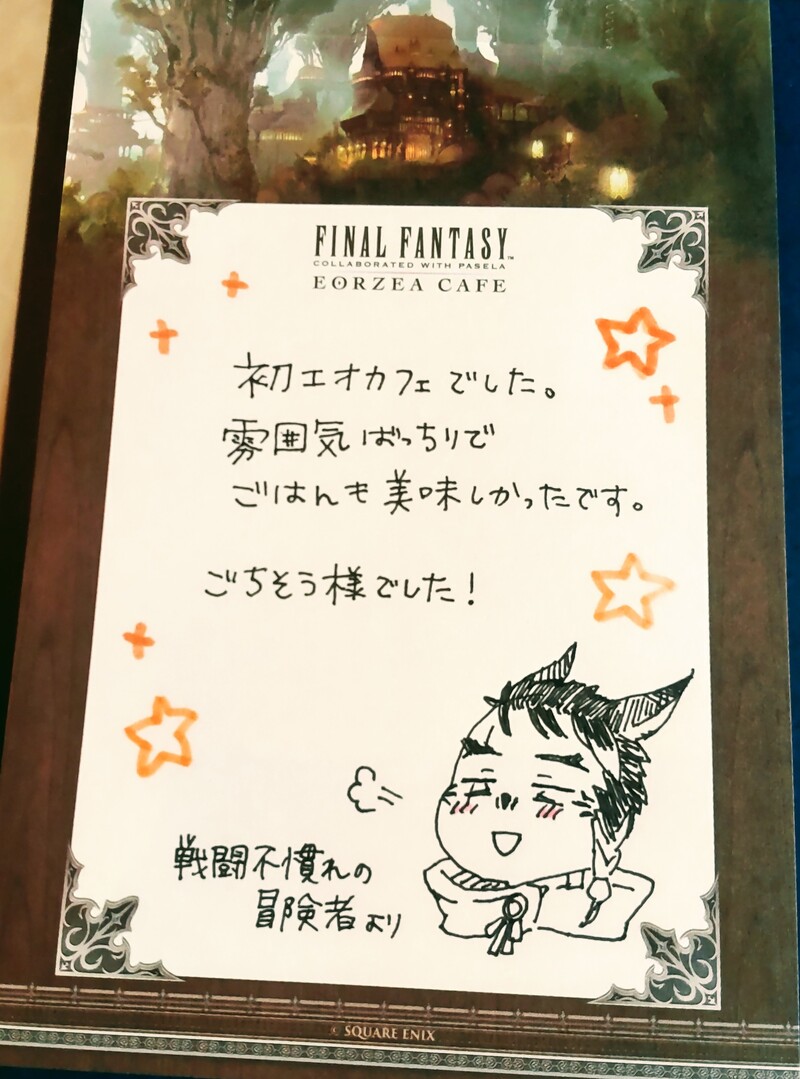 FINAL FANTASY™
COLLABORATED WITH PASELA
EORZEA CAFE
初エオカフェでした。
雰囲気ばっちりで
ごはんも美味しかったです。
ごちそう様でした！
戦闘不慣れの
冒険者より
© SQUARE ENIX